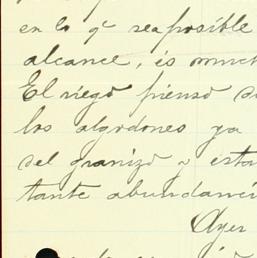 en lo q̃ sea posible
alcance, es much
El riego pienso d
los algodones ya
del granizo y esta
tante abundanci
Ayer